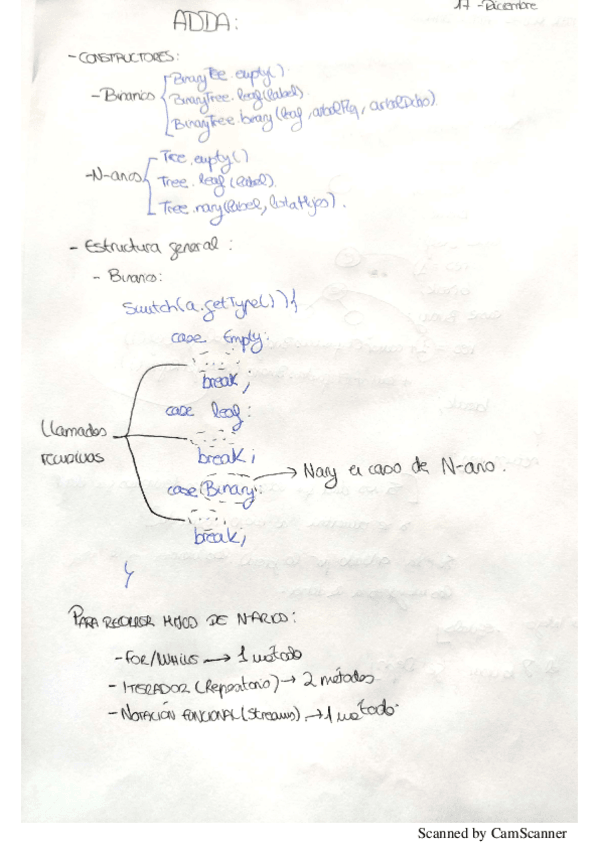 17 - Diciembre
ADDA:
- CONSTRUCTORES:
- Binarios
BinaryTree.empty()
BinaryTree.leaf(label)
BinaryTree.binary(leaf, arbolIzq, arbolDcho)
- N-arios
Tree.empty()
Tree.leaf(label)
Tree.nary(label, listaHijos).
- Estructura general:
- Binarios:
Switch(a.getType()){
case Empty:
break;
case leaf:
Llamadas
recursivas
break;
case Binary: → Nary en caso de N-ario.
break;
}
PARA RECORRER HIJOS DE N-ARIO:
- FOR/WHILE → 1 método
- ITERADOR (Repositorio) → 2 métodos
- NOTACIÓN FUNCIONAL (Streams) → 1 método.
Scanned by CamScanner